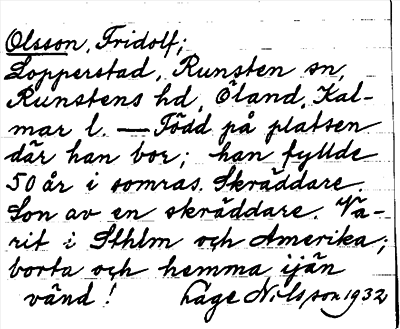 Olsson, Fridolf;
Lopperstad, Runsten sn,
Runstens hd, Öland, Kal-
mar l. — Född på platsen
där han bor; han fyllde
50 år i somras. Skräddare.
Son av en skräddare. Va-
rit i Sthlm och Amerika;
borta och hemma ijän
vänd! Låge Nilsson 1932